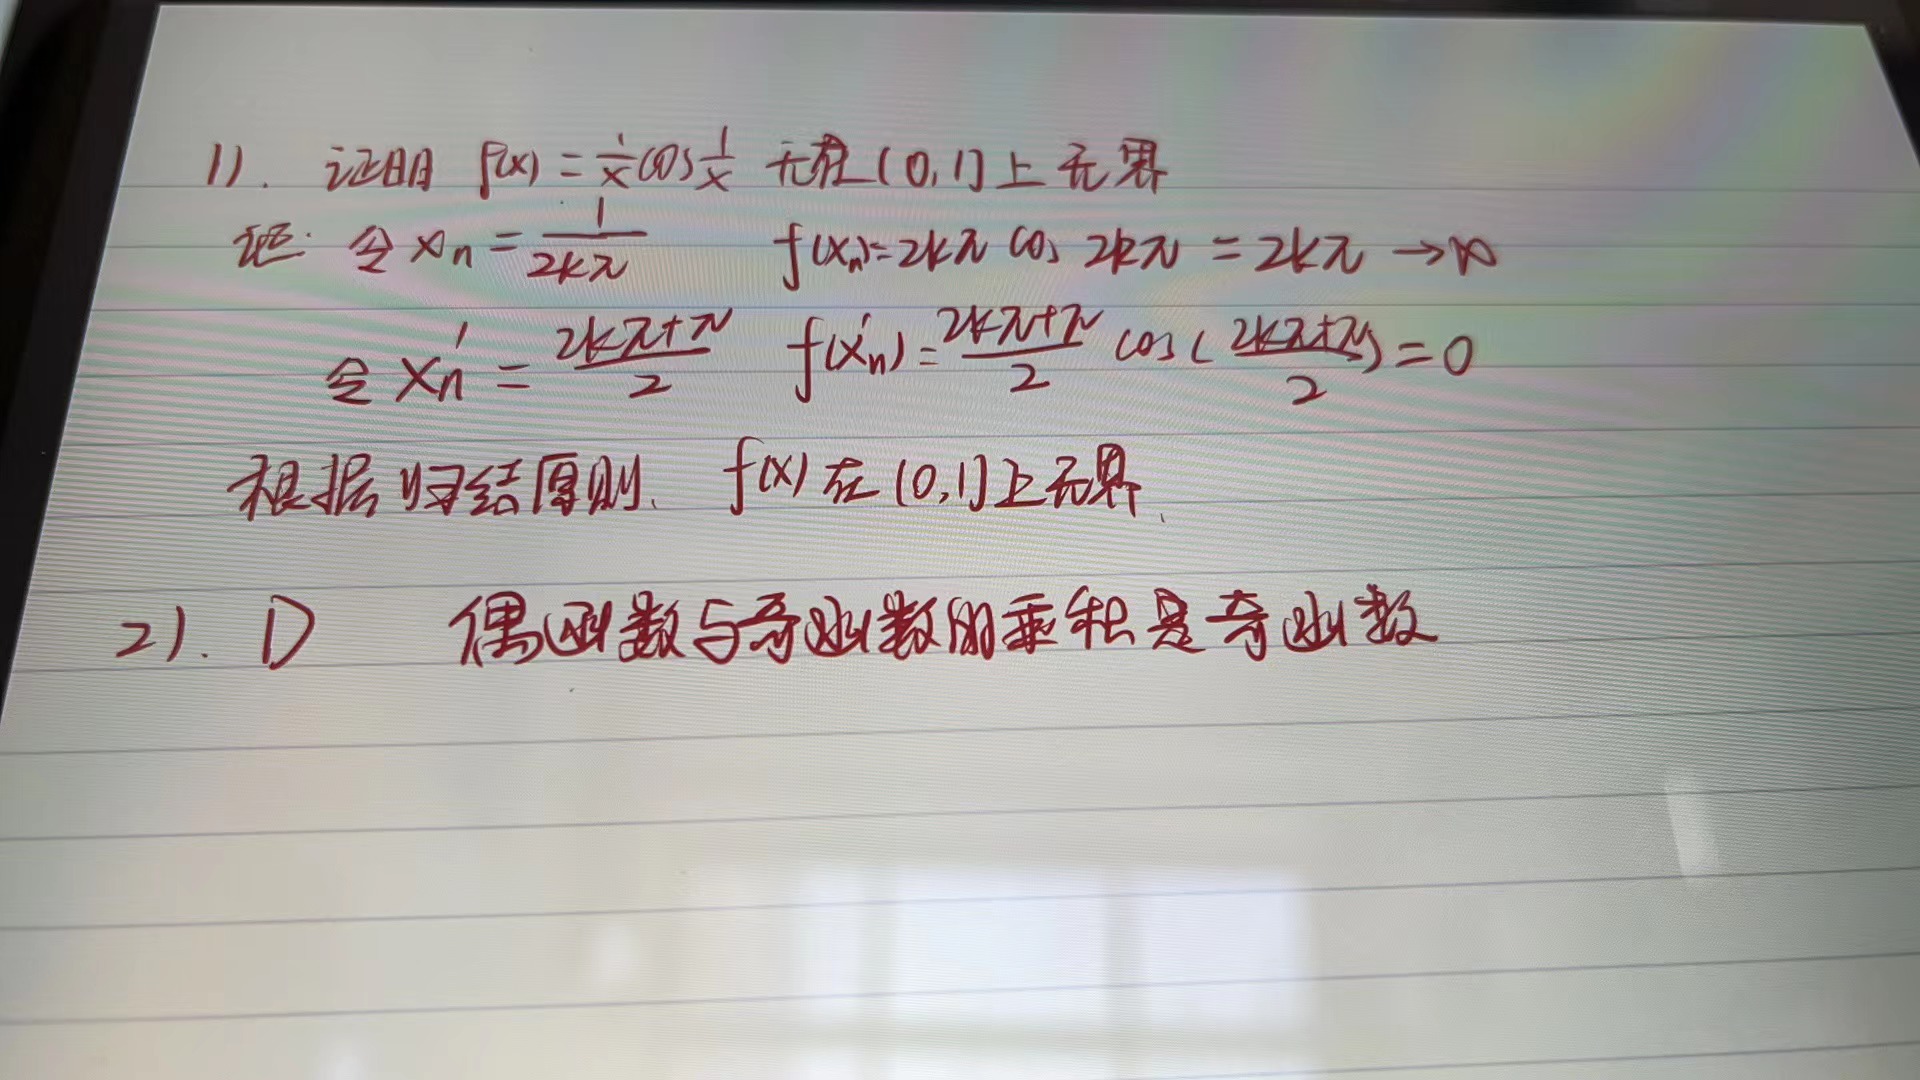 1). 证明 f(x) = 1/x cos 1/x 在(0,1]上无界
证: 令 xn = 1/2kπ f(xn) = 2kπ cos 2kπ = 2kπ → ∞
令 xn' = 2kπ+π/2 f(xn') = 2kπ+π/2 cos(2kπ+π/2) = 0
根据归结原则. f(x)在(0,1]上无界.
2). D 偶函数与奇函数的乘积是奇函数